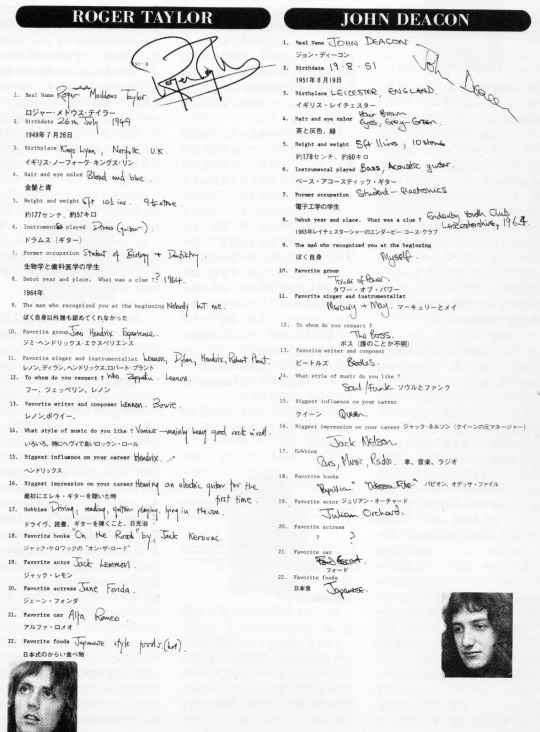 ROGER TAYLOR
Roger Taylor
1. Real Name Roger Meddows Taylor
ロジャー・メドウス・テイラー
2. Birthdate 26th July 1949
1949年7月26日
3. Birthplace Kings Lynn, Norfolk U.K.
イギリス・ノーフォーク・キングス・リン
4. Hair and eye color Blond and blue.
金髪と青
5. Height and weight 5ft 10½ ins. 9 stone.
約177センチ、約57キロ
6. Instruments played Drums (guitar).
ドラムス(ギター)
7. Former occupation Student of Biology + Dentistry.
生物学と歯科医学の学生
8. Debut year and place. What was a clue ?? 1964.
1964年
9. The man who recognized you at the beginning Nobody but me.
ぼく自身以外誰も認めてくれなかった
10. Favorite group Jimi Hendrix Experience.
ジミ・ヘンドリックス・エクスペリエンス
11. Favorite singer and instrumentalist Lennon, Dylan, Hendrix, Robert Plant.
レノン,ディラン,ヘンドリックス,ロバート・プラント
12. To whom do you respect ? Who. Zeppelin. Lennon.
フー、ツェッペリン、レノン
13. Favorite writer and composer Lennon. Bowie.
レノン,ボウイー。
14. What style of music do you like ? Various—mainly heavy good rock n' roll.
いろいろ、特にヘヴィで良いロックン・ロール
15. Biggest influence on your career Hendrix.
ヘンドリックス
16. Biggest impression on your career Hearing an electric guitar for the
first time.
最初にエレキ・ギターを聴いた時
17. Hobbies Driving, reading, guitar playing, lying in the sun.
ドライヴ、読書、ギターを弾くこと、日光浴
18. Favorite books "On the Road" by Jack Kerouac.
ジャック・ケロワックの "オン・ザ・ロード"
19. Favorite actor Jack Lemmon.
ジャック・レモン
20. Favorite actress Jane Fonda.
ジェーン・フォンダ
21. Favorite car Alfa Romeo
アルファ・ロメオ
22. Favorite foods Japanese style foods.(hot)
日本式のからい食べ物
JOHN DEACON
John Deacon
1. Real Name JOHN DEACON
ジョン・ディーコン
2. Birthdate 19·8·51
1951年8月19日
3. Birthplace LEICESTER, ENGLAND.
イギリス・レイチェスター
4. Hair and eye color Hair Brown
Eyes, Grey-Green.
茶と灰色、緑
5. Height and weight 5ft 11ins, 10 stone
約178センチ、約60キロ
6. Instrumental played Bass, Acoustic guitar.
ベース・アコースティック・ギター
7. Former occupation Student - Electronics
電子工学の学生
8. Debut year and place. What was a clue ? Enderby Youth Club
Leicestershire, 1963
1963年レイチェスターシャーのエンダービー・ユース・クラブ
9. The man who recognized you at the beginning
ぼく自身 Myself.
10. Favorite group
Tower of Power.
タワー・オブ・パワー
11. Favorite singer and instrumentalist
Mercury + May. マーキュリーとメイ
12. To whom do you respect ?
The Boss.
ボス(誰のことか不明)
13. Favorite writer and composer
ビートルズ Beatles.
14. What style of music do you like ?
Soul/Funk ソウルとファンク
15. Biggest influence on your career
クイーン Queen.
16. Biggest impression on your career ジャック・ネルソン(クイーンの元マネージャー)
Jack Nelson.
17. Hobbies
Cars, Music, Radio. 車、音楽、ラジオ
18. Favorite books
"Papillion" "Odessa File" パピオン、オデッサ・ファイル
19. Favorite actor ジュリアン・オーチャード
Julian Orchard.
20. Favorite actress
? ?
21. Favorite car
Ford Escort.
フォード
22. Favorite foods
日本食 Japanese.